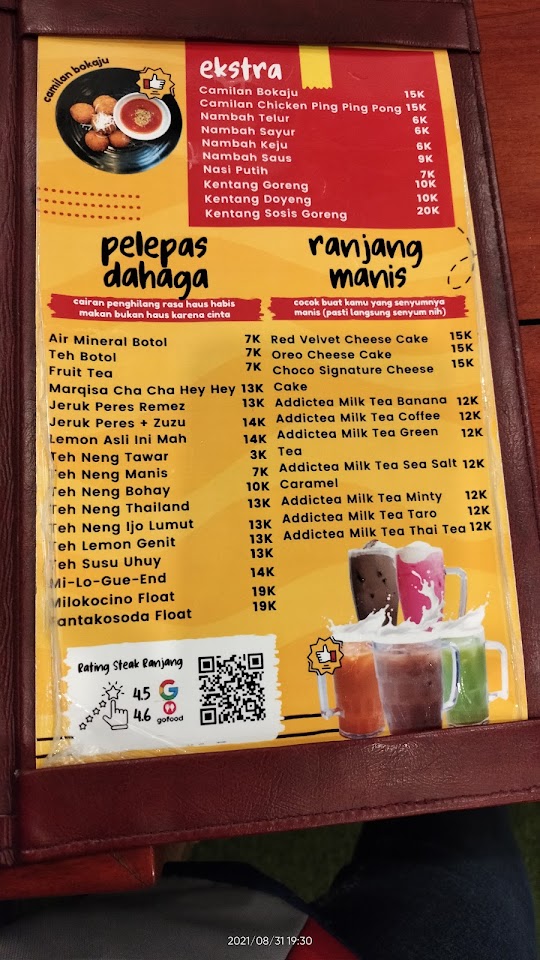 camilan bokaju
ekstra
Camilan Bokaju 15K
Camilan Chicken Ping Ping Pong 15K
Nambah Telur 6K
Nambah Sayur 6K
Nambah Keju 6K
Nambah Saus 9K
Nasi Putih 7K
Kentang Goreng 10K
Kentang Doyeng 10K
Kentang Sosis Goreng 20K
pelepas
dahaga
cairan penghilang rasa haus habis
makan bukan haus karena cinta
Air Mineral Botol 7K
Teh Botol 7K
Fruit Tea 7K
Marqisa Cha Cha Hey Hey 13K
Jeruk Peres Remez 13K
Jeruk Peres + Zuzu 14K
Lemon Asli Ini Mah 14K
Teh Neng Tawar 3K
Teh Neng Manis 7K
Teh Neng Bohay 10K
Teh Neng Thailand 13K
Teh Neng Ijo Lumut 13K
Teh Lemon Genit 13K
Teh Susu Uhuy 13K
Mi-Lo-Gue-End 14K
Milokocino Float 19K
Fantakosoda Float 19K
ranjang
manis
cocok buat kamu yang senyumnya
manis (pasti langsung senyum nih)
Red Velvet Cheese Cake 15K
Oreo Cheese Cake 15K
Choco Signature Cheese 15K
Cake
Addictea Milk Tea Banana 12K
Addictea Milk Tea Coffee 12K
Addictea Milk Tea Green 12K
Tea
Addictea Milk Tea Sea Salt 12K
Caramel
Addictea Milk Tea Minty 12K
Addictea Milk Tea Taro 12K
Addictea Milk Tea Thai Tea 12K
Rating Steak Ranjang
4.5 G
4.6 gofood
2021/08/31 19:30